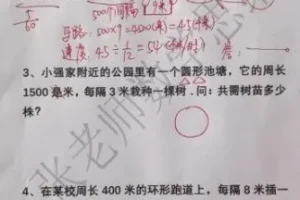 500个间隔
马路: 500×9=4500(米)=4.5(千米)
速度: 4.5÷1/12=54(千米/时)
答:
3、小强家附近的公园里有一个圆形池塘，它的周长
1500 毫米，每隔 3 米栽种一棵树.问：共需树苗多少
株？
4、在某校周长 400 米的环形跑道上，每隔 8 米插一
张老师数学思